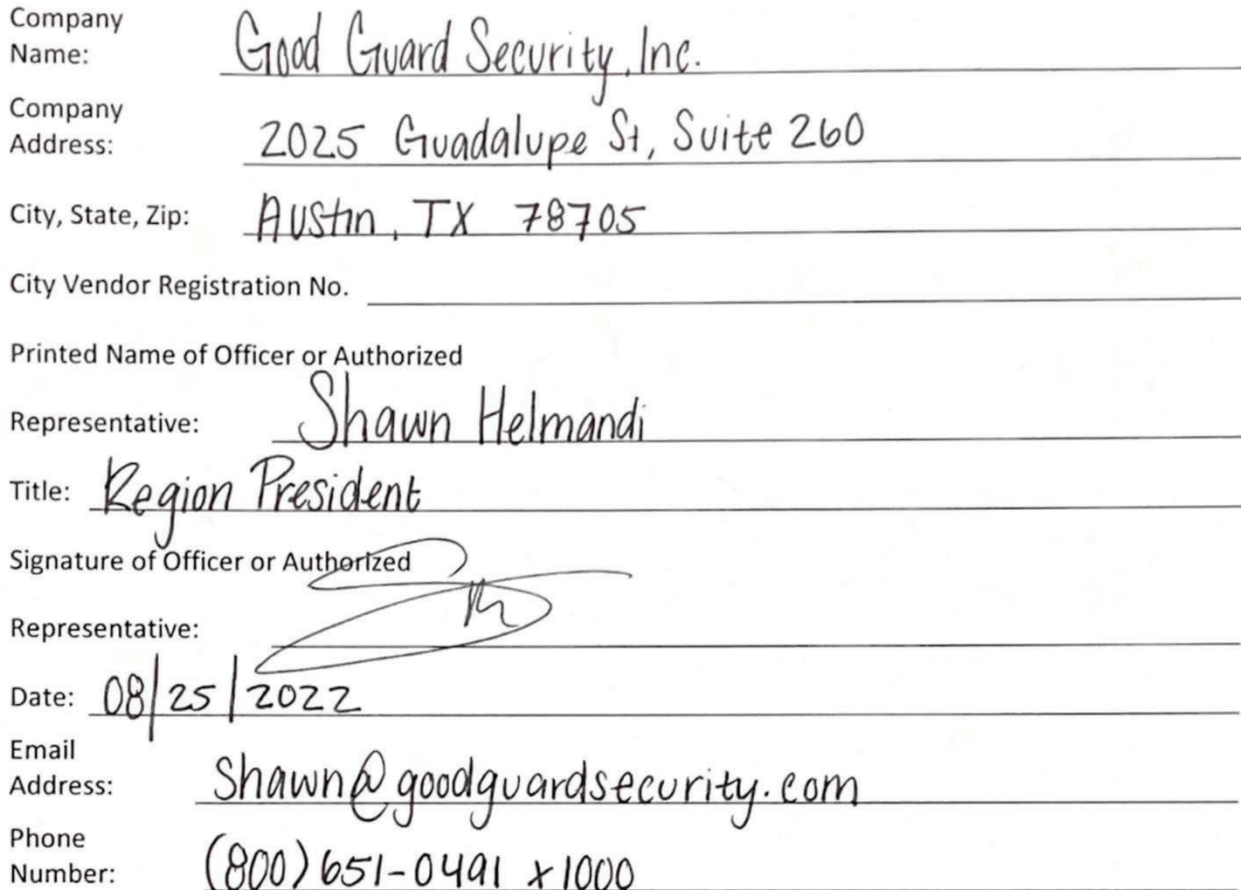 Company
Name: Good Guard Security, Inc.
Company
Address: 2025 Guadalupe St, Suite 260
City, State, Zip: Austin, TX 78705
City Vendor Registration No.
Printed Name of Officer or Authorized
Representative: Shawn Helmandi
Title: Region President
Signature of Officer or Authorized
Representative:
Date: 08/25/2022
Email
Address: Shawn@goodguardsecurity.com
Phone
Number: (800) 651-0491 x1000